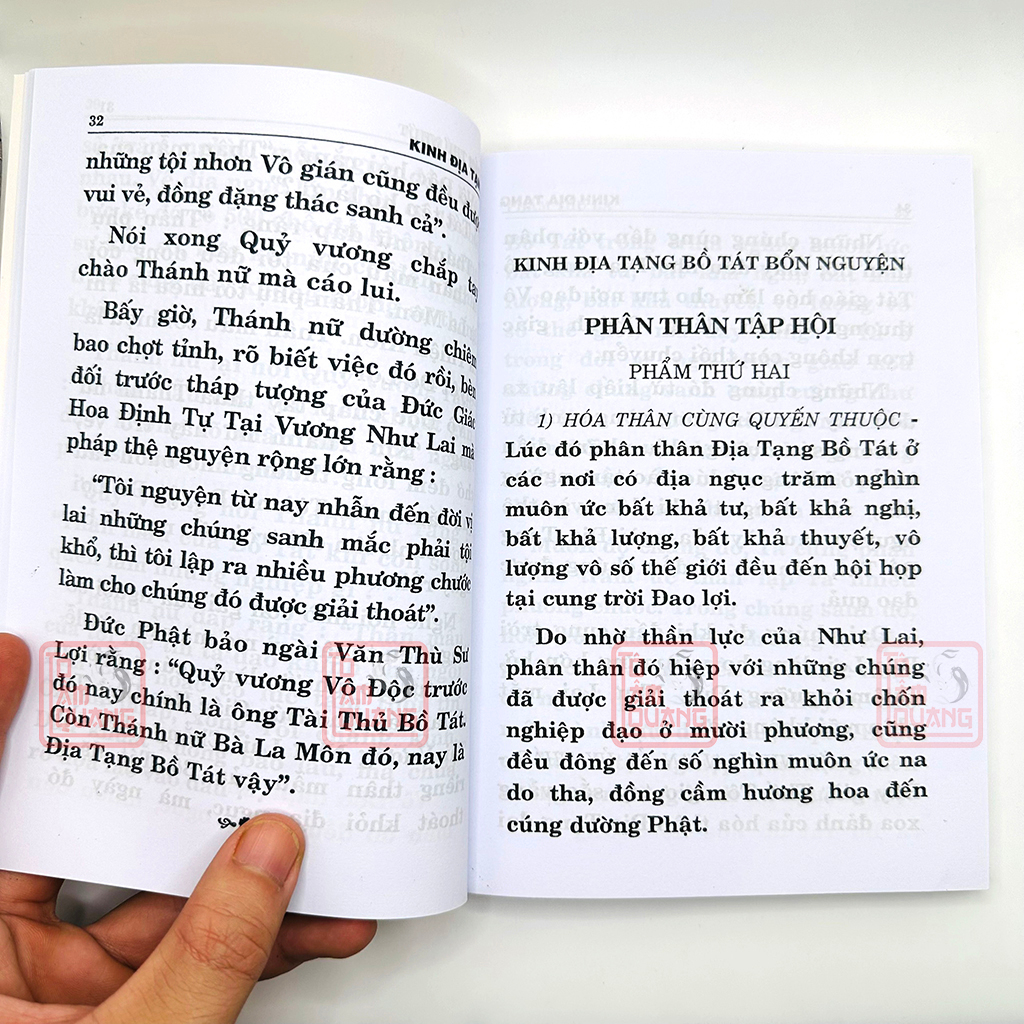 32
KINH ĐỊA TẠ
những tội nhơn Vô gián cũng đều đượ
vui vẻ, đồng đặng thác sanh cả”.
Nói xong Quỷ vương chắp tay
chào Thánh nữ mà cáo lui.
Bấy giờ, Thánh nữ dường chiêm
bao chợt tỉnh, rõ biết việc đó rồi, bèn
đối trước tháp tượng của Đức Giác
Hoa Định Tự Tại Vương Như Lai mà
pháp thệ nguyện rộng lớn rằng :
“Tôi nguyện từ nay nhẫn đến đời vị
lai những chúng sanh mắc phải tội
khổ, thì tôi lập ra nhiều phương chước
làm cho chúng đó được giải thoát”.
Đức Phật bảo ngài Văn Thù Sư
Lợi rằng : “Quỷ vương Vô Độc trước
đó nay chính là ông Tài Thủ Bồ Tát.
Còn Thánh nữ Bà La Môn đó, nay là
Địa Tạng Bồ Tát vậy”.
KINH ĐỊA TẠNG BỒ TÁT BỔN NGUYỆN
PHÂN THÂN TẬP HỘI
PHẨM THỨ HAI
1) HÓA THÂN CÙNG QUYẾN THUỘC -
Lúc đó phân thân Địa Tạng Bồ Tát ở
các nơi có địa ngục trăm nghìn
muôn ức bất khả tư, bất khả nghị,
bất khả lượng, bất khả thuyết, vô
lượng vô số thế giới đều đến hội họp
tại cung trời Đao lợi.
Do nhờ thần lực của Như Lai,
phân thân đó hiệp với những chúng
đã được giải thoát ra khỏi chốn
nghiệp đạo ở mười phương, cũng
đều đông đến số nghìn muôn ức na
do tha, đồng cầm hương hoa đến
cúng dường Phật.
Từ
TÂM
QUANG
Từ
TÂM
QUANG
Từ
TÂM
QUANG
Từ
TÂM
QUANG